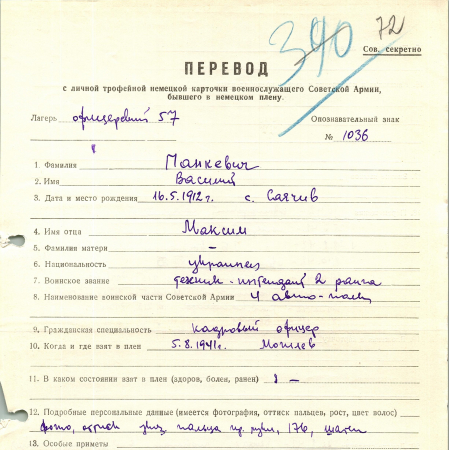 390
72
Сов. секретно
ПЕРЕВОД
с личной трофейной немецкой карточки военнослужащего Советской Армии,
бывшего в немецком плену.
Лагерь офицерский 57 Опознавательный знак
№ 1036
1. Фамилия Манкевич
2. Имя Василий
3. Дата и место рождения 16.5.1912 г. с.
4. Имя отца Максим
5. Фамилия матери –
6. Национальность украинец
7. Воинское звание техник-интендант 2 ранга
8. Наименование воинской части Советской Армии 4 авто-полк
9. Гражданская специальность кадровый офицер
10. Когда и где взят в плен 5.8.1941г. Могилев
11. В каком состоянии взят в плен (здоров, болен, ранен) –
12. Подробные персональные данные (имеется фотография, оттиск пальцев, рост, цвет волос)
фото, оттиск пальца пр. руки, 176, шатен
13. Особые приметы